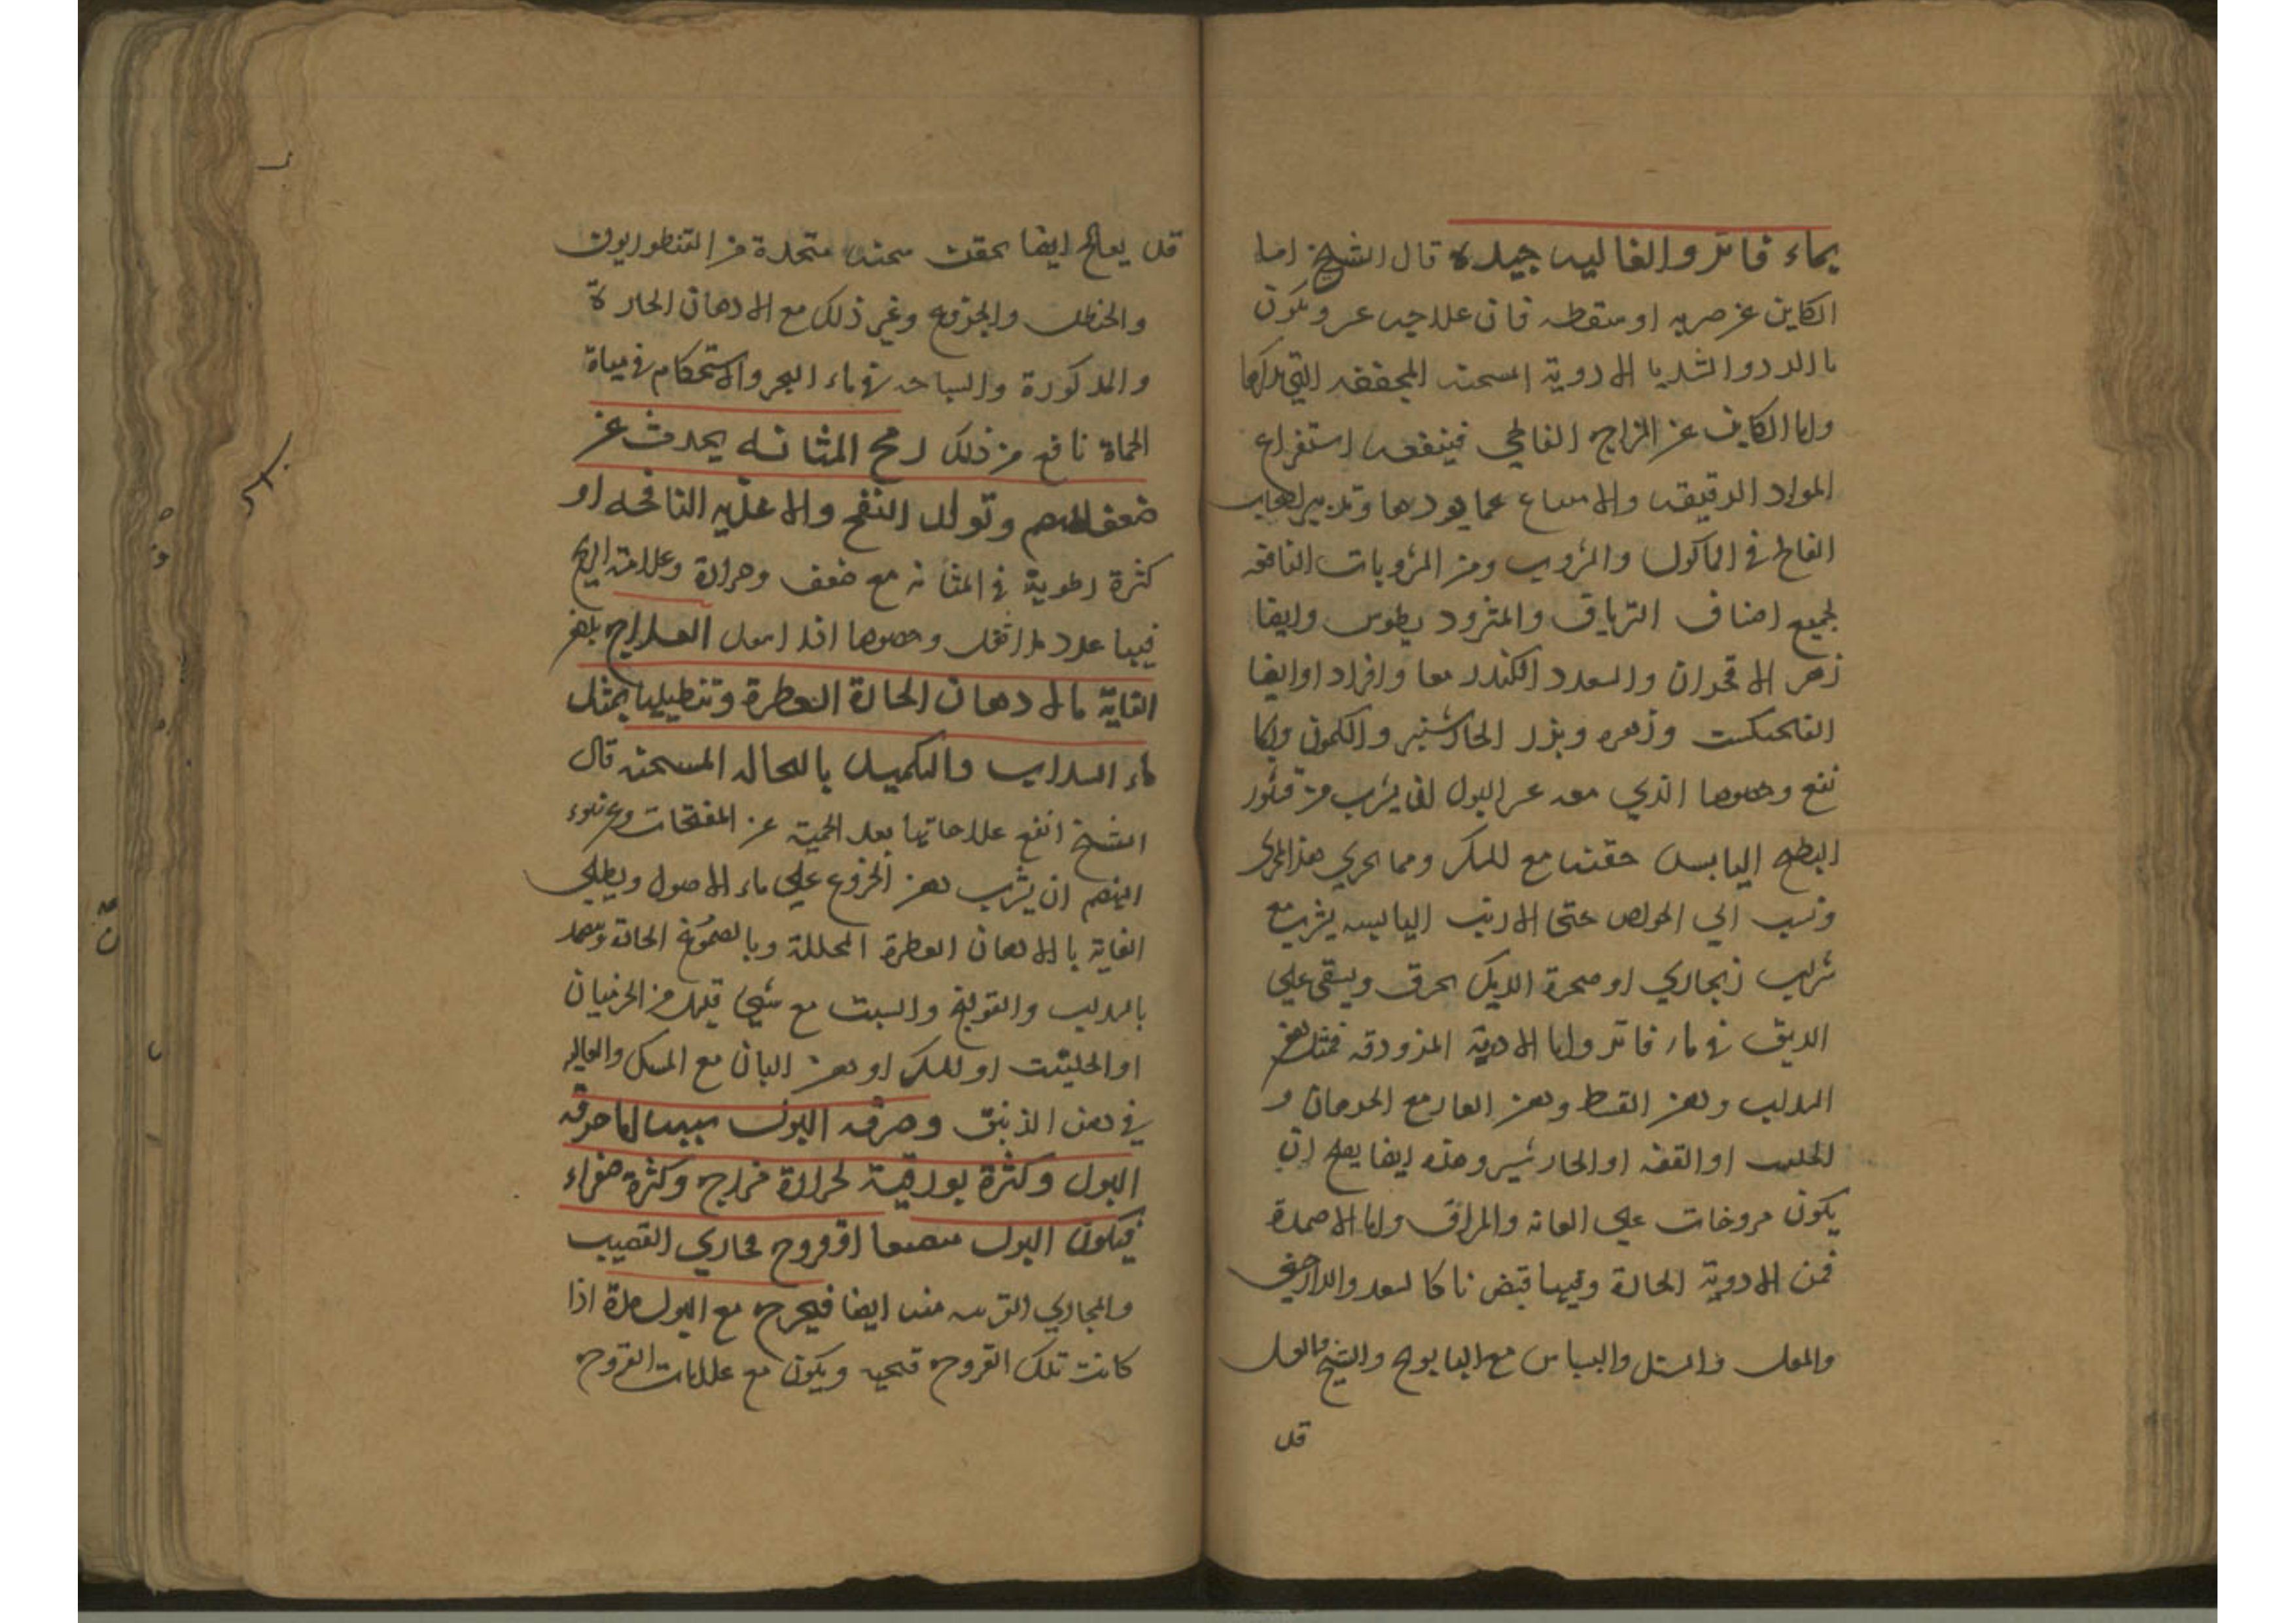 بماء فاتر والغاليه جيده قال الشيخ اما
الكاين عن ضربه او سقطه فان علاجه عسر ويكون
الادوية المسخنه المجففه التي
واما الكاين عن المزاج الفالجي فينفعه استفراغ
المواد الرقيقه والامتناع عما يولدها وتدبير اصحاب
الفالج في الماكول والمشروب ومن المشروبات النافعه
لجميع اصناف الترياق والمثرود يطوس وايضا
زهر الاقحوان والسعد والكندر معا وافراد اوايضا
الفنجنكست وزهره وبزر الجاوشير والكمون
نفع وخصوصا الذي معه عسر البول ان يشرب من قشور
البطيخ اليابس حفنه مع السكر ومما يجري هذا المجري
ونسب الي الخواص خصي الارنب اليابسه يشرب مع
شراب ريحاني او حنجرة الديك يحرق ويسقي علي
الريق في ماء فاتر واما الادوية المزروقه فمثل دهن
ودهن القسط ودهن الغار مع
او القنه او الجاوشير وهذه ايضا يصلح ان
يكون مروخات علي العانه والمراق واما الاضمدة
فمن الادوية الحارة وفيها قبض ما كالسعد والدارصيني
والسنبل والبسباس مع البابونج والشيح
قد
قد يعالج ايضا بحقن مسخنه متخذة من القنطوريون
والحنظل والخروع وغير ذلك مع الادهان الحارة
والمذكورة والسباحه في ماء البحر والاستحمام في مياة
الحماة نافع من ذلك ريح المثانه يحدث عن
ضعف الهضم وتولد النفخ والاغذيه النافخه او
كثرة رطوبة في المثانه مع ضعف وحرارة وعلامته الريح
فيها تمدد بلا ثقل وخصوصا اذا العلاج بدهن
العانة بالادهان الحارة العطرة وتنطيلها بمثل
ماء السداب والتكميد المسخنه قال
الشيخ انفع علاجاتها بعد الحمية عن المنفخات وعن سوء
الهضم ان يشرب دهن الخروع علي ماء الاصول ويطلي
العانة بالادهان العطرة المحللة وبالصموغ الحارة ويضمد
بالسداب والفوتنج والشبت مع شي قليل من
او الحلتيت او المسك او دهن البان مع المسك والغاليه
في دهن الزنبق وحرقه البول سببه اما حرقه
البول وكثرة بورقية لحرارة مزاج وكثرة صفراء
فيكون البول منصبغا او قروح مجاري القضيب
والمجاري القريبه منه ايضا فيخرج مع البول مدة اذا
كانت تلك القروح قيحيه ويكون مع علامات القروح